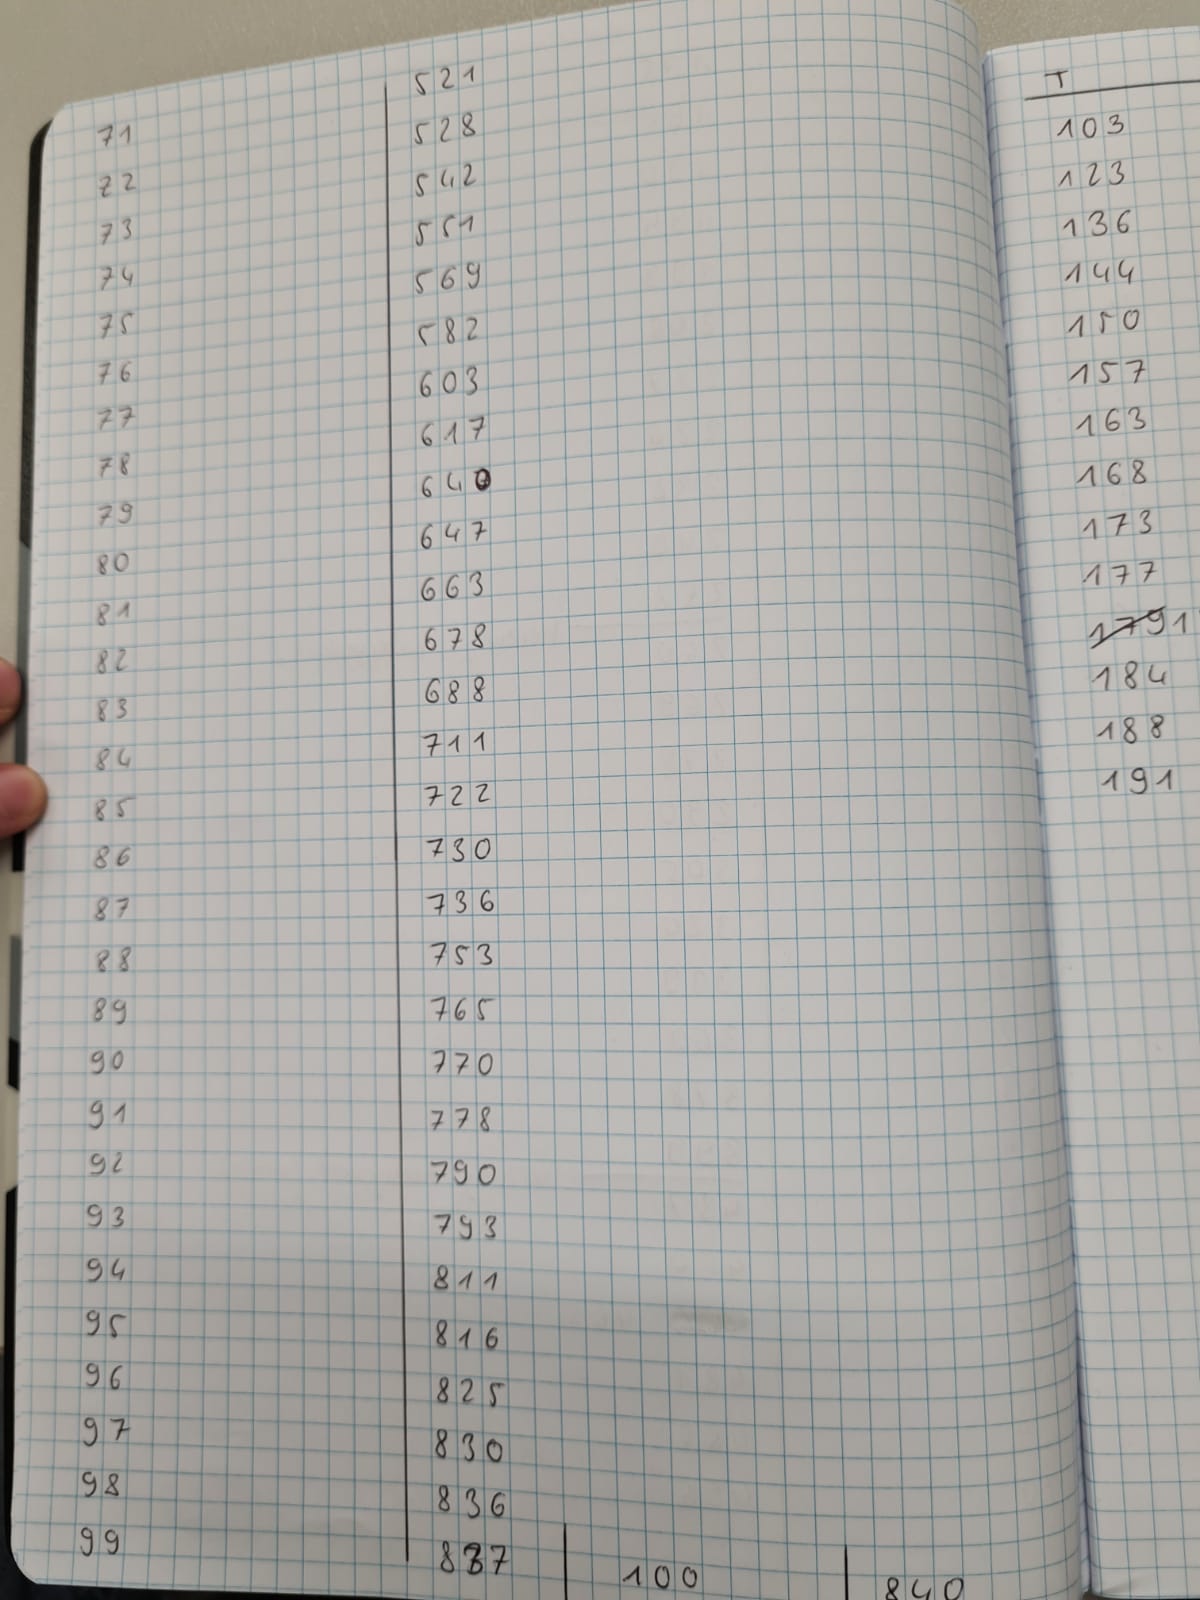 71 521
72 528
73 542
74 551
75 569
76 582
77 603
78 617
79 640
80 647
81 663
82 678
83 688
84 711
85 722
86 730
87 736
88 753
89 765
90 770
91 778
92 790
93 793
94 811
95 816
96 825
97 830
98 836
99 837 100 840
T
103
123
136
144
150
157
163
168
173
177
1791
184
188
191